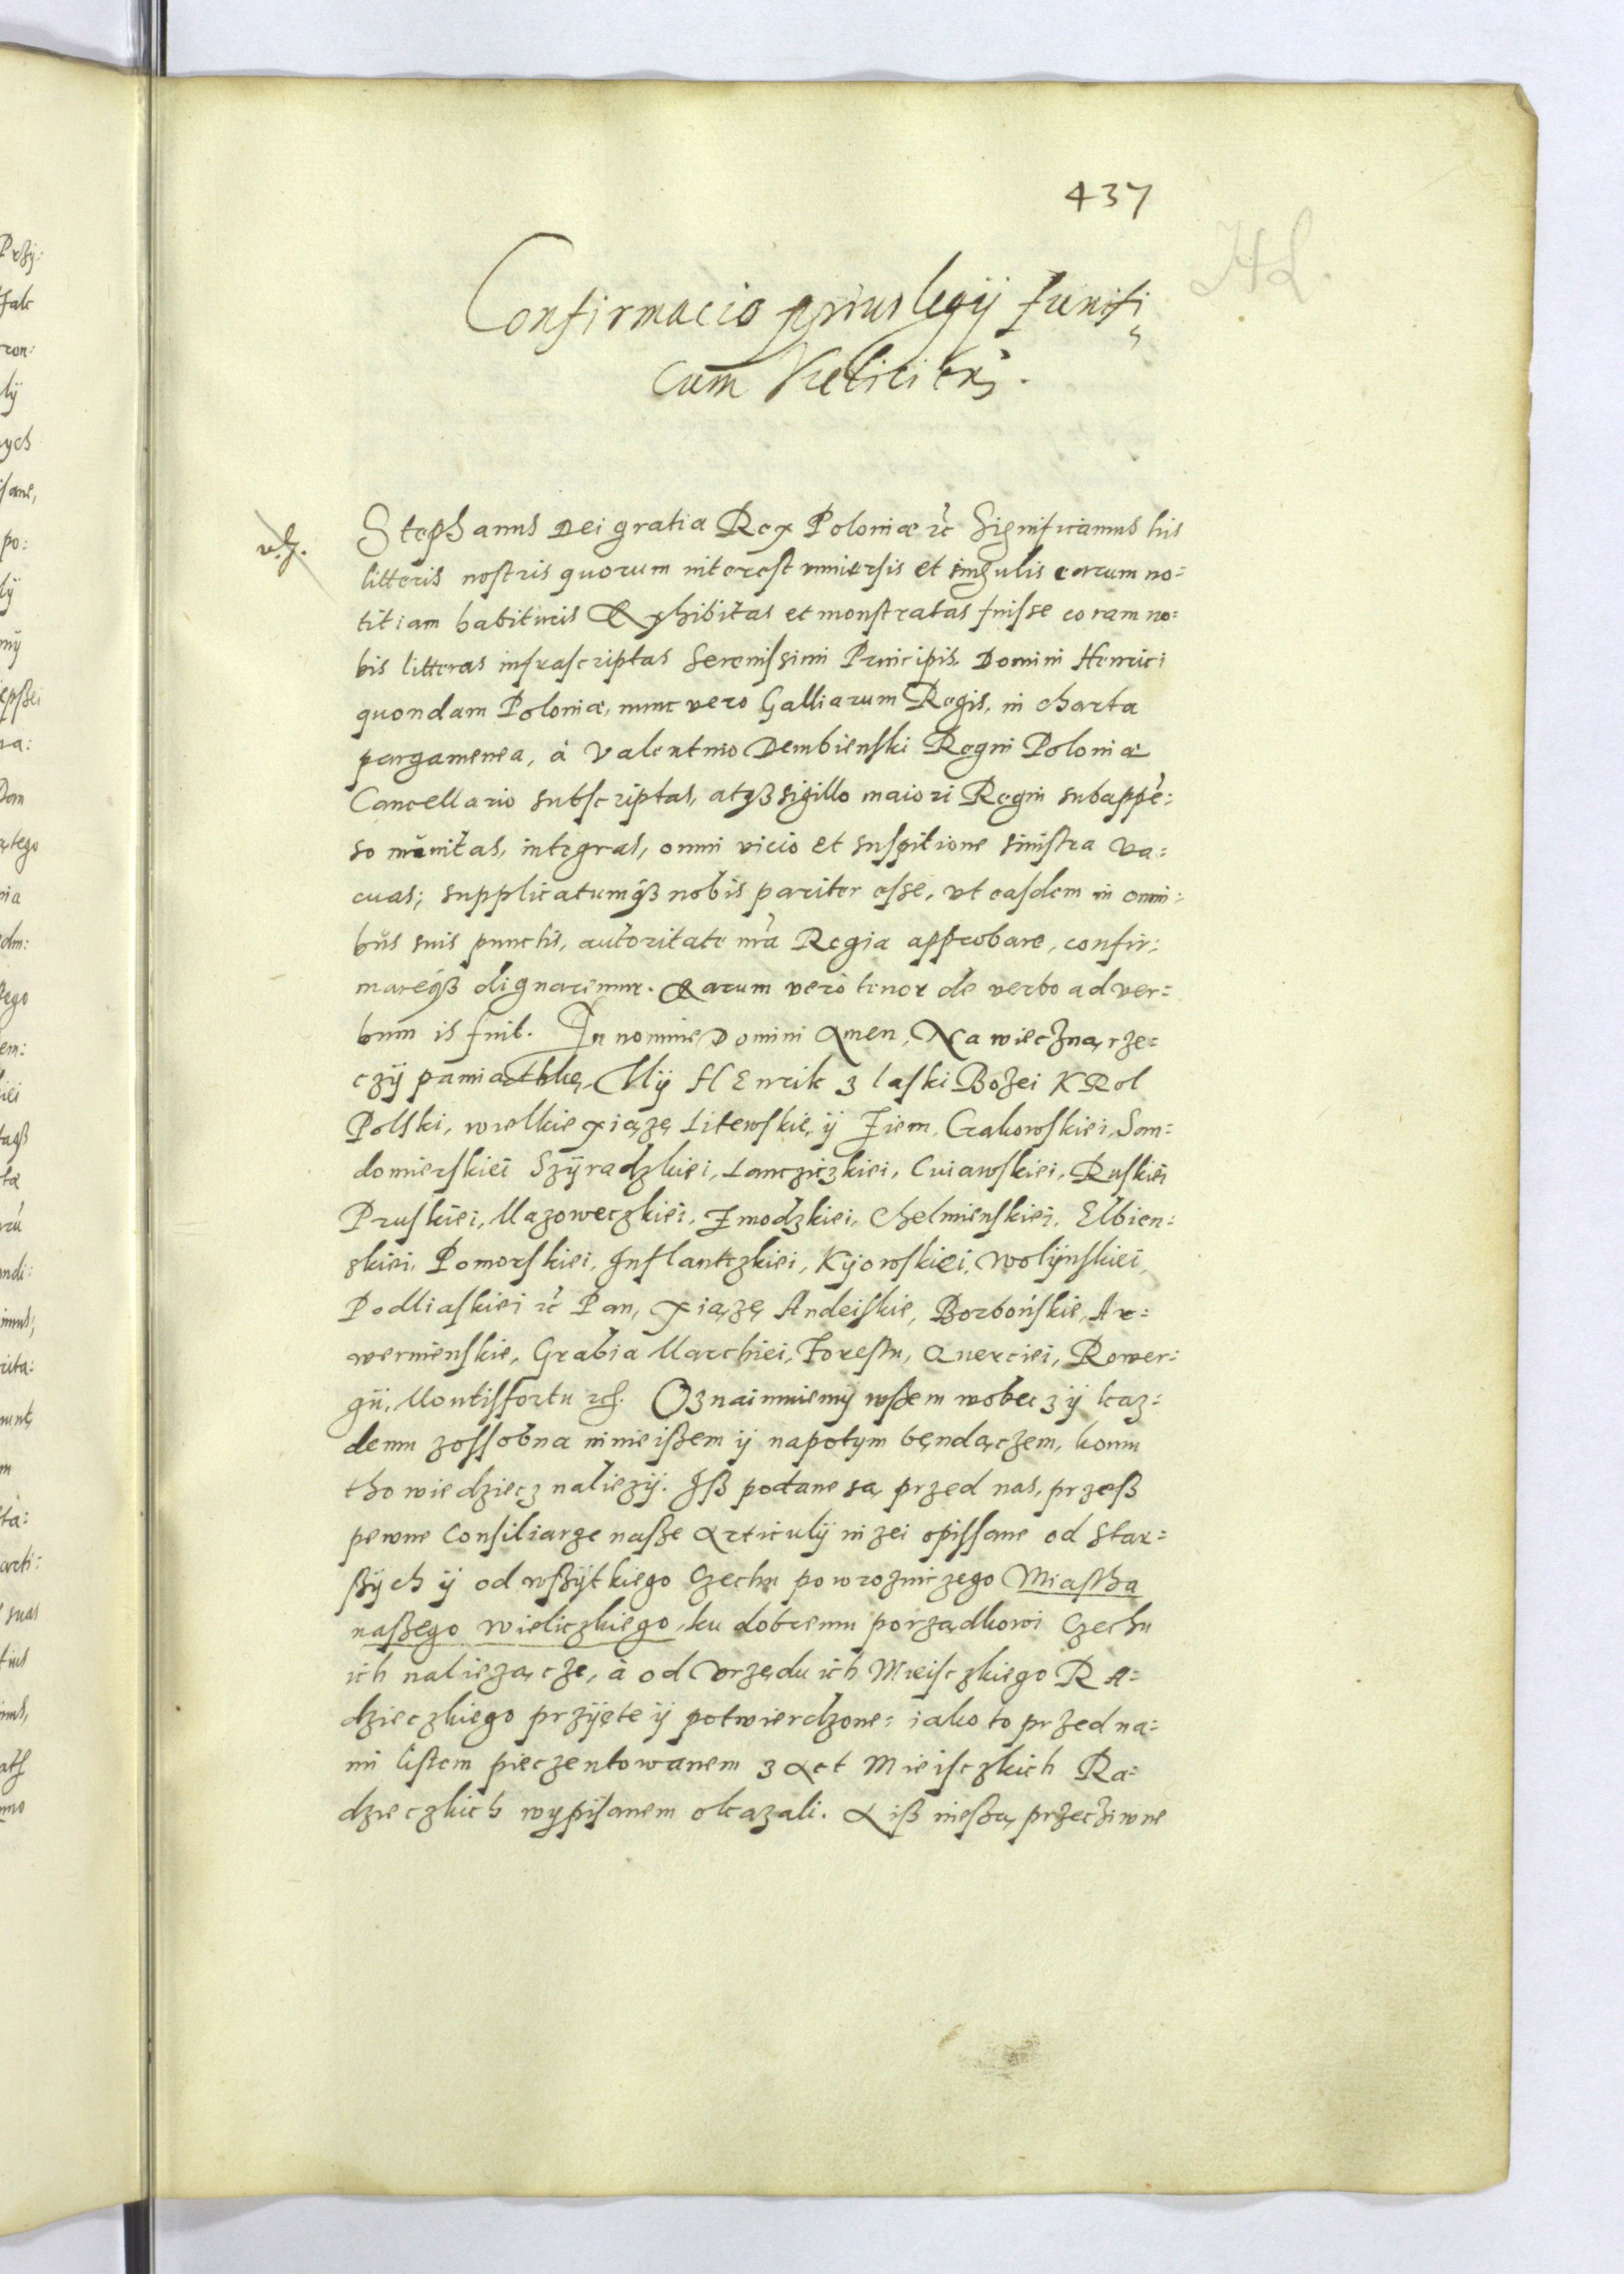 437
HL.
Confirmacio priuilegij funifi
cum Velicien̄.
Stephanus Dei gratia Rex Poloniæ ꝛc̄ Significamus his
litteris nostris quorum interest vniuersis et singulis earum no:
titiam habituris Exhibitas et monstratas fuisse coram no:
bis litteras infrascriptas Serenissimi Principis Domini Henrici
quondam Poloniæ, nunc vero Galliarum Regis, in charta
pargamenea, à Valentino Dembienski Regni Poloniæ
Cancellario subscriptas, atqꝫ sigillo maiori Regni subappē:
so munitas, integras, omni vicio et suspitione sinistra va:
cuas; supplicatumqꝫ nobis pariter esse, vt easdem in omni:
bus suis punctis, autoritate nr̄a Regia approbare, confir:
mareqꝫ dignaremur. Earum vero tenor de verbo ad ver:
bum is fuit. In nomine Domini Amen, Na wieczną rze:
czÿ pamiathkę, Mÿ HEnrik z laski Bożei KRol
Polski, wielkie xiążę Litewskie, ÿ Ziem, Crakowskiei, San:
domierskiei Szÿradzkiei, Lanczickiei, Cuiawskiei, Ruskiei
Pruskiei, Mazoweczkiei, Zmodzkiei, Chelmienskiei, Elbien:
skiei, Pomorskiei, Inflantczkiei, Kÿowskiei, Wolÿnskiei,
Podliaskiei ꝛc̄ Pan, xiążę Andeiskie, Borbońskie, Ar:
wernienskie, Grabia Marchiei, Forestu, Querciei, Rower:
gii, Montisfortu ꝛc̄. Oznaimuiemÿ wßem wobecz ÿ kaz:
demu zossobna ninieißem ÿ napotym bęndączem, komu
tho wiedziecz naliezÿ. Iß podane są przed nas, przeß
pewne Consiliarze naße Articulÿ nizei opissane od Star:
ßÿch ÿ od wßÿtkiego Czechu powrozniczego Miastha
naßego Wieliczkiego, ku dobremu porządkowi Czechu
ich należącze, à od Vrzędu ich Mieisczkiego RA:
dzieczkiego przÿęte ÿ potwierdzone: iako to przed na:
mi listem pieczentowanem z Act Mieisczkich Ra:
dzieczkich wypisanem okazali. A iß nießą przecziwne